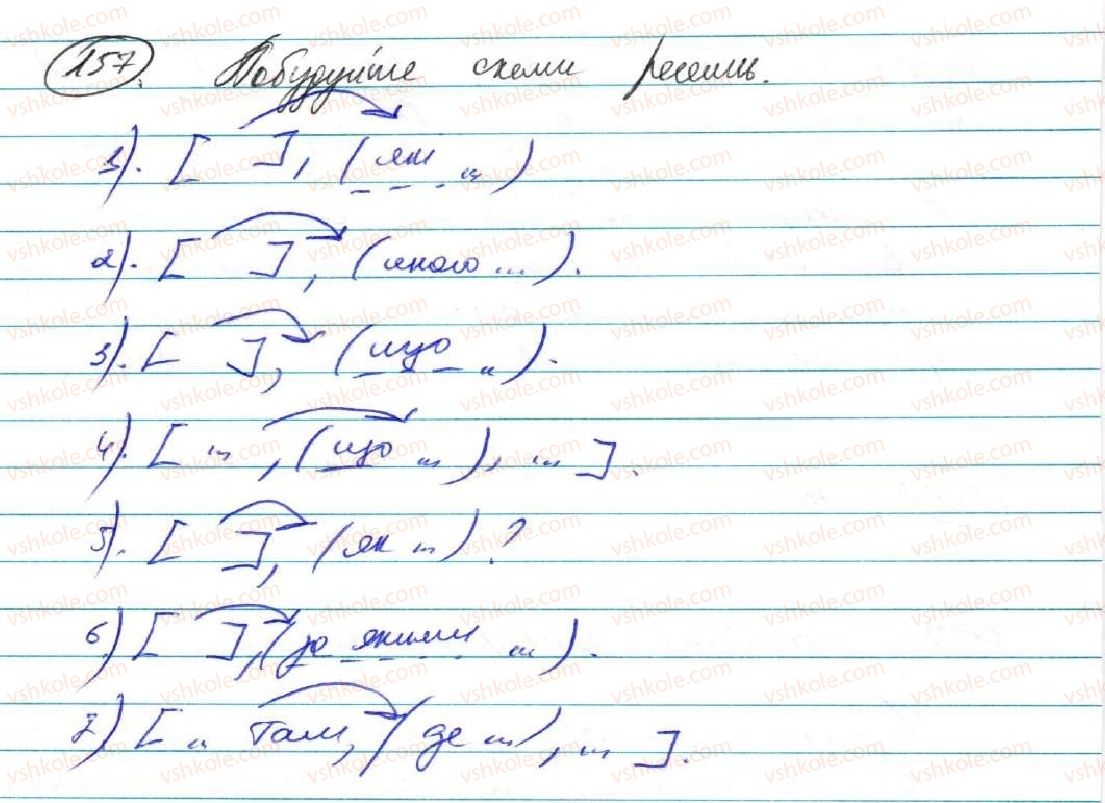 157. Побудуйте схеми речень.
1). [ ], (як ...)
2). [ ], (якого ...).
3). [ ], (що ...).
4). [ ... , (що ...), ... ].
5). [ ], (як ...)?
6) [ ], (за якими ...).
7) [ ... там, (де ...), ... ].
vshkole.com